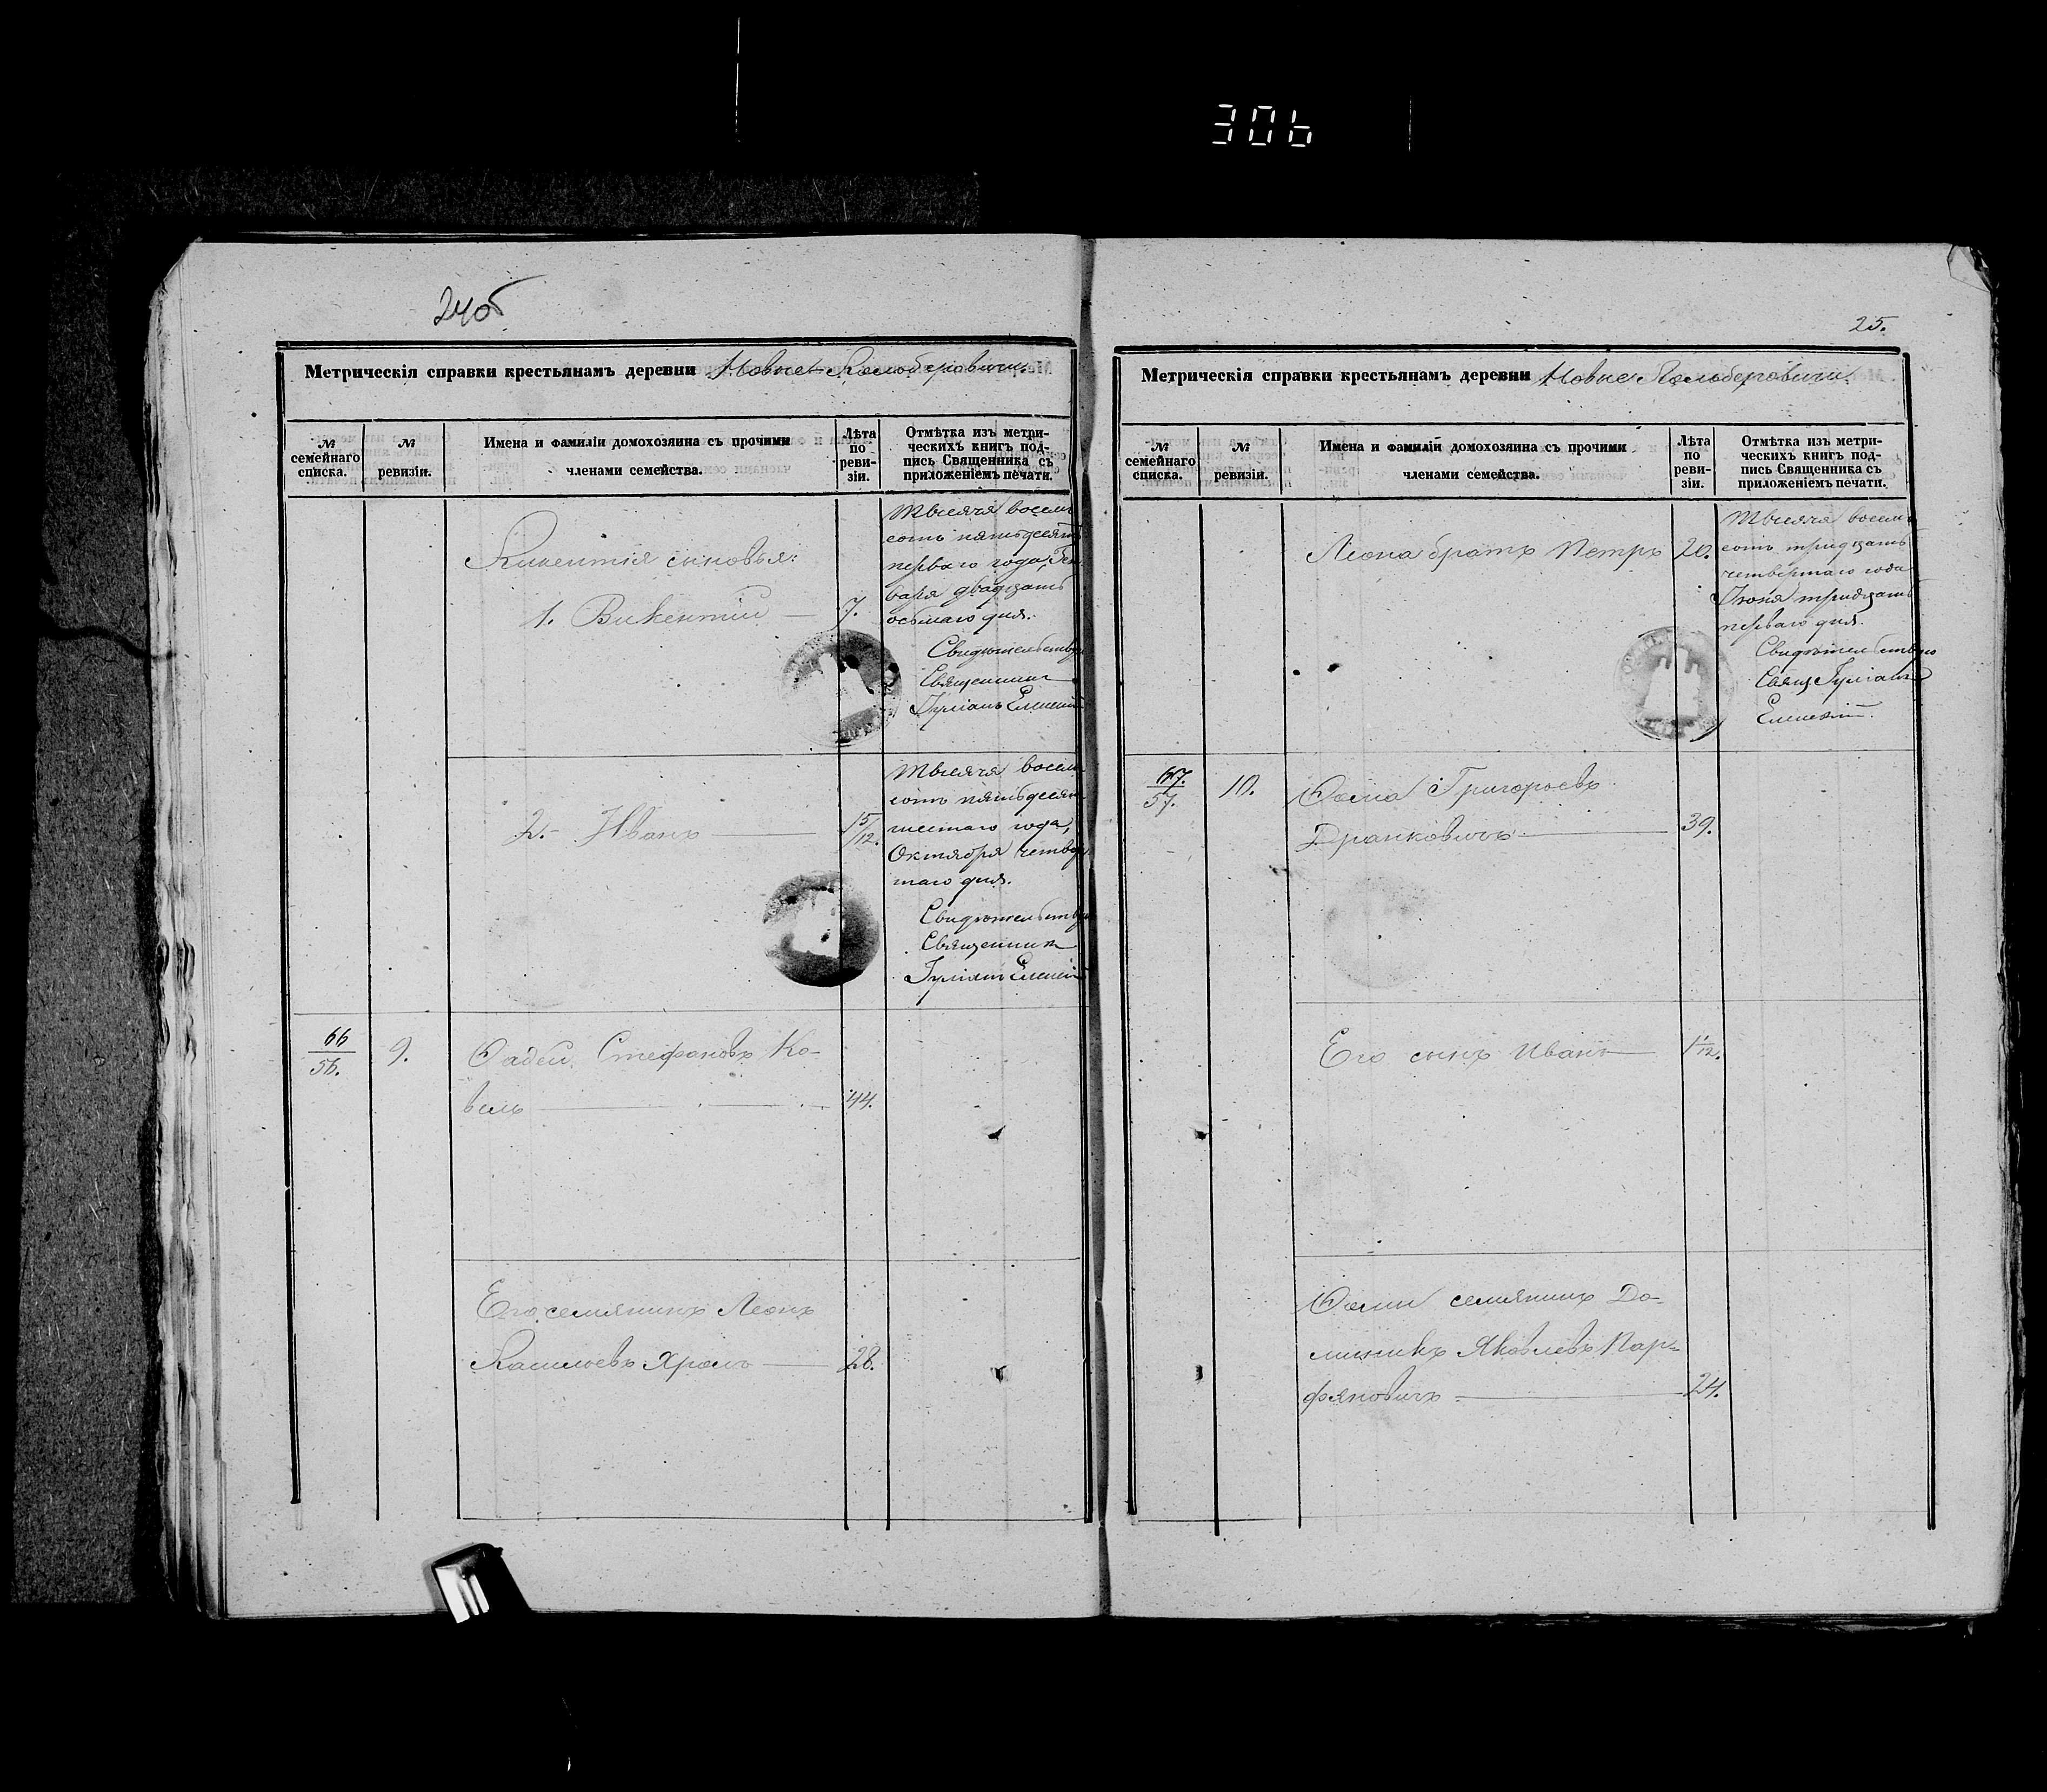 306
24об
Метрическія справки крестьянамъ деревни Новые-Гольберовичи.
№ семейнаго списка.
№ ревизіи.
Имена и фамиліи домохозяина съ прочими членами семейства.
Лѣта по реви-
зіи.
Отмѣтка изъ метри-
ческихъ книгъ под-
пись Священника съ
приложеніемъ печати.
Викентія сыновья:
1. Викентій — 7.
Тысяча восемь
сотъ пятьдесятъ
перваго года, Ген
варя двадцать
осьмаго дня.
Свидѣтельствую
Священникъ
Іуліанъ
2. Иванъ — 1 5/12.
Тысяча восемь
сотъ пятьдесят
шестаго года,
Октября четвер
таго дня.
Свидѣтельствую
Священникъ
Іуліанъ
66
56.
9.
Фадей Стефановъ Ко-
валь — 44.
Его семянинъ Леонъ
Хроль — 28.
25.
Метрическія справки крестьянамъ деревни Новые Гольберовичи.
№ семейнаго списка.
№ ревизіи.
Имена и фамиліи домохозяина съ прочими членами семейства.
Лѣта по реви-
зіи.
Отмѣтка изъ метри-
ческихъ книгъ под-
пись Священника съ
приложеніемъ печати.
Леона братъ Петръ 20.
Тысяча восемь
сотъ тридцать
четвертаго года
Іюня тридцать
перваго дня.
Свидѣтельствую
Свящ. Іуліанъ
67.
57.
10.
Фома Григорьевъ
Дранковичъ — 39.
Его сынъ Иванъ — 1 1/12.
Фомы семянинъ До-
миникъ Яковлевъ Пар-
фяновичъ — 24.